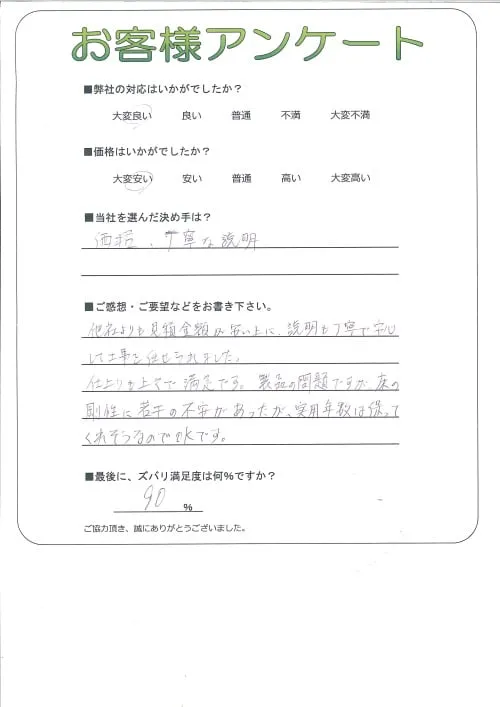 お客様アンケート
■弊社の対応はいかがでしたか？
大変良い 良い 普通 不満 大変不満
■価格はいかがでしたか？
大変安い 安い 普通 高い 大変高い
■当社を選んだ決め手は？
価格、丁寧な説明
■ご感想・ご要望などをお書き下さい。
他社よりも見積金額が安い上に、説明も丁寧で安心
して工事を任せられました。
仕上りも上々で満足です。製品の問題ですが、床の
剛性に若干の不安があったが、実用年数は保って
くれそうなのでOKです。
■最後に、ズバリ満足度は何％ですか？
90 %
ご協力頂き、誠にありがとうございました。